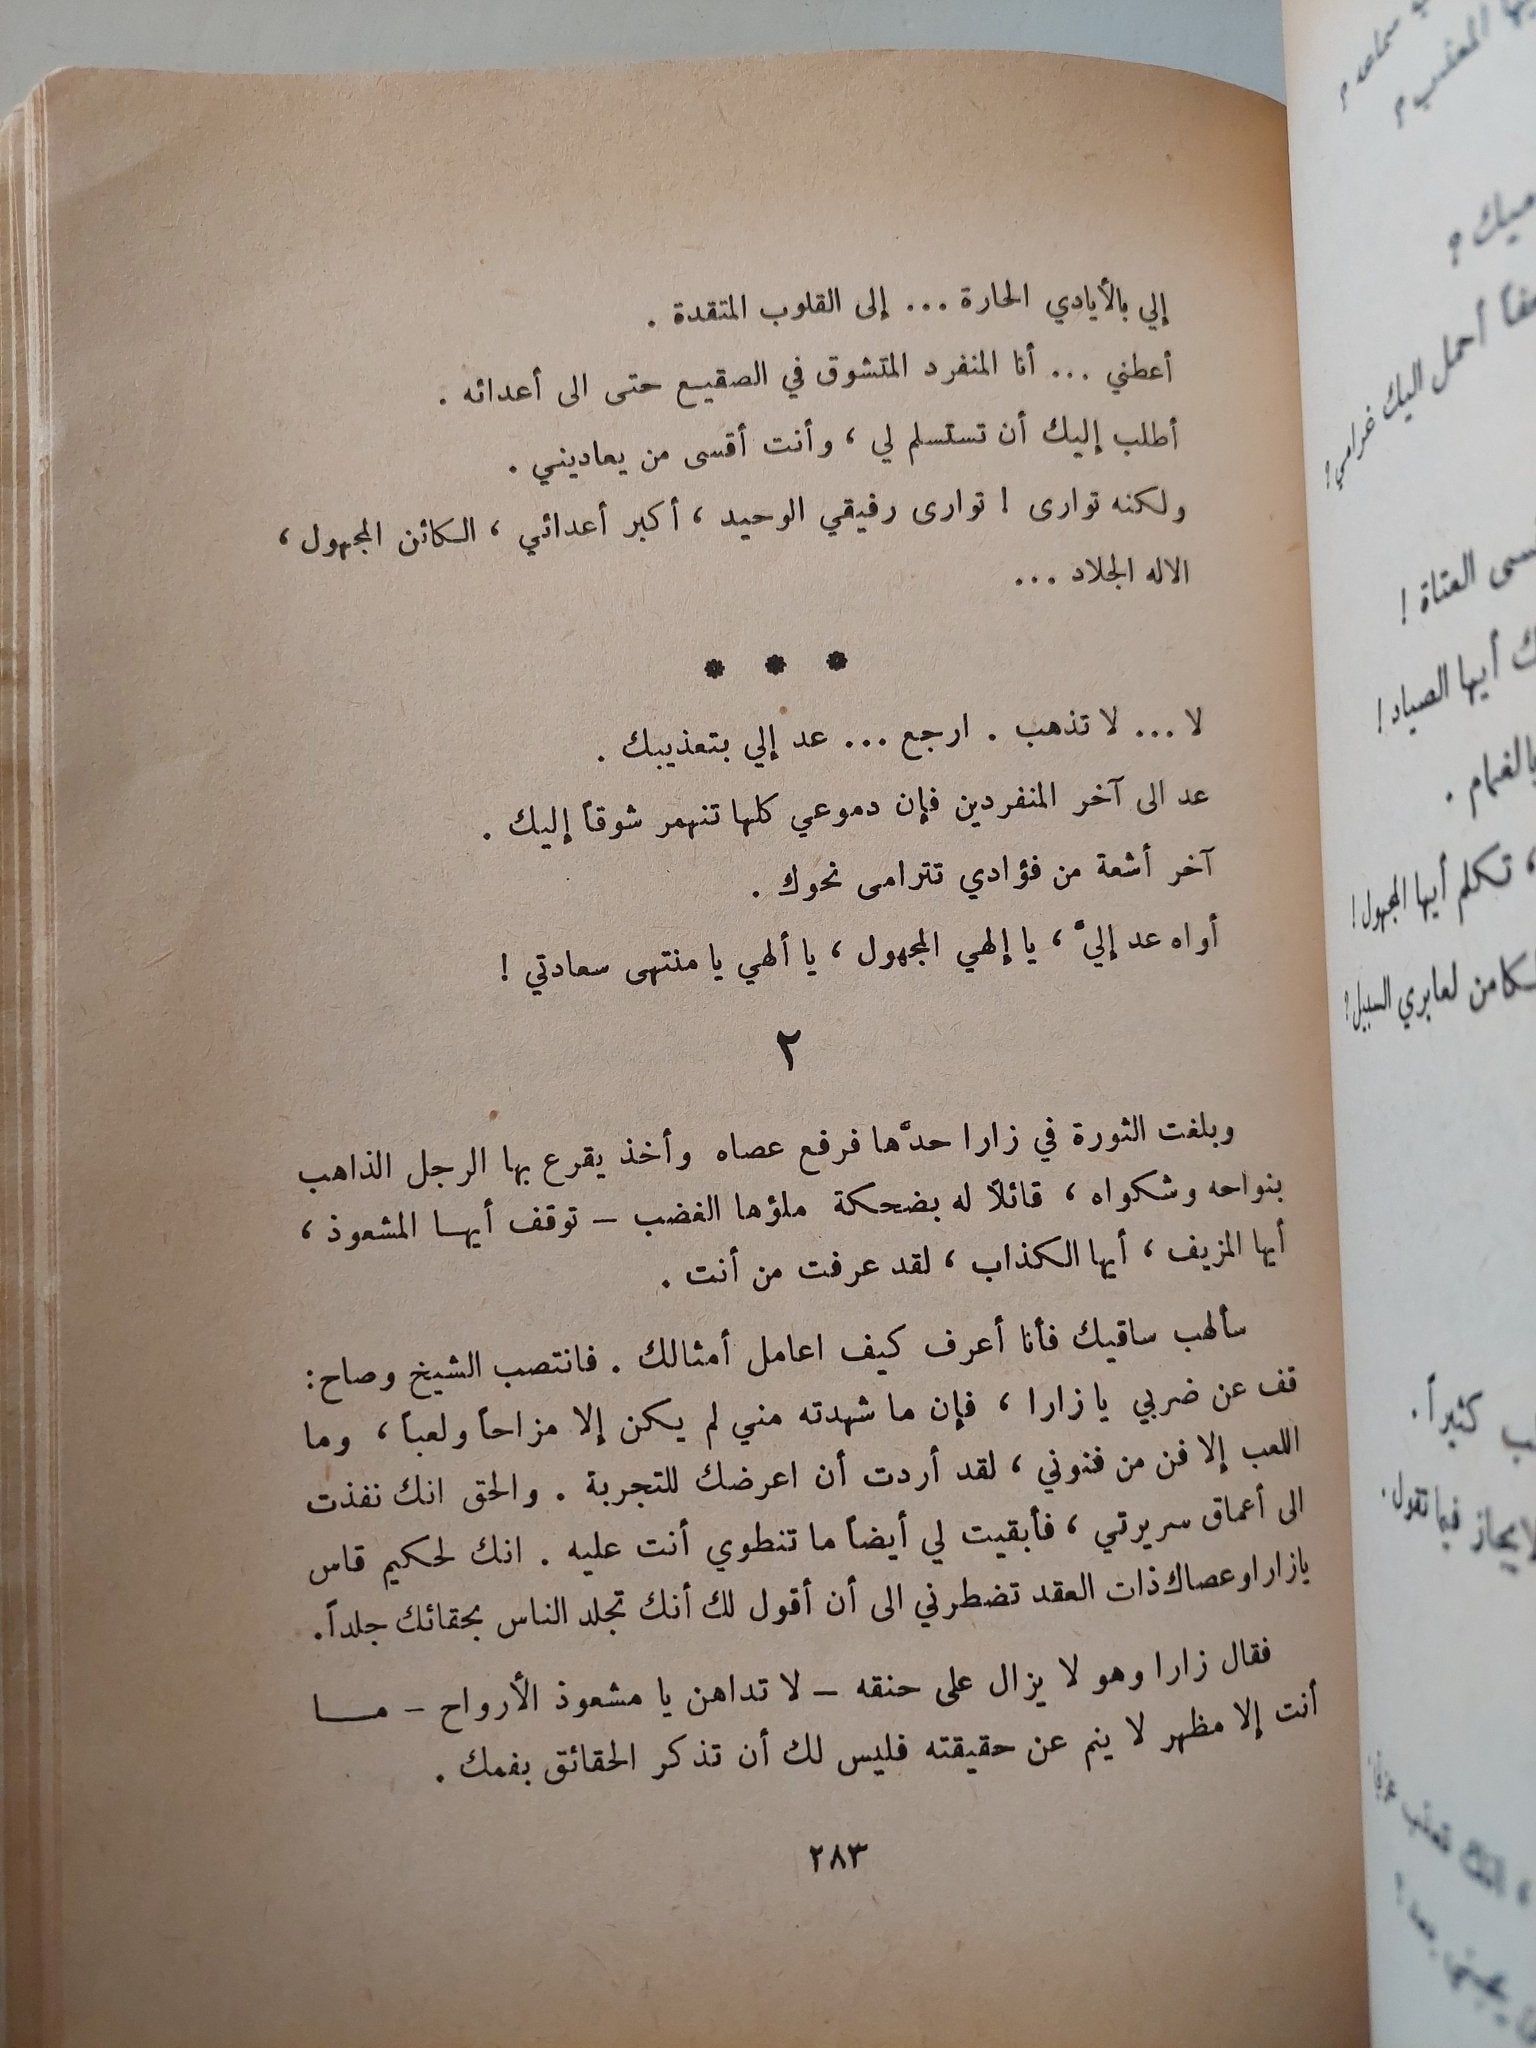 إلي بالأيادي الحارة ... إلى القلوب المتقدة .
أعطني ... أنا المنفرد المتشوق في الصقيع حتى الى أعدائه .
أطلب إليك أن تستسلم لي ، وأنت أقسى من يعاديني .
ولكنه توارى ! توارى رفيقي الوحيد ، أكبر أعدائي ، الكائن المجهول ،
الاله الجلاد ...
* * *
لا ... لا تذهب . ارجع ... عد إلي بتعذيبك .
عد الى آخر المنفردين فإن دموعي كلها تنهمر شوقاً إليك .
آخر أشعة من فؤادي تترامى نحوك .
أواه عد إليَّ ، يا إلهي المجهول ، يا ألهي يا منتهى سعادتي !
٢
وبلغت الثورة في زارا حدَّها فرفع عصاه وأخذ يقرع بها الرجل الذاهب
بنواحه وشكواه ، قائلاً له بضحكة ملؤها الغضب – توقف أيهـا المشعوذ ،
أيها المزيف ، أيها الكذاب ، لقد عرفت من أنت .
سألهب ساقيك فأنا أعرف كيف اعامل أمثالك . فانتصب الشيخ وصاح :
قف عن ضربي يا زارا ، فإن ما شهدته مني لم يكن إلا مزاحاً ولعباً ، وما
اللعب إلا فن من فنوني ، لقد أردت أن اعرضك للتجربة . والحق انك نفذت
الى أعماق سريرتي ، فأبقيت لي أيضاً ما تنطوي أنت عليه . انك لحكيم قاس
يازارا وعصاك ذات العقد تضطرني الى أن أقول لك أنك تجلد الناس بحقائك جلداً .
فقال زارا وهو لا يزال على حنقه – لا تداهن يا مشعوذ الأرواح – مــا
أنت إلا مظهر لا ينم عن حقيقته فليس لك أن تذكر الحقائق بفمك .
٢٨٣
سماعه ؟
المعذب ؟
أحمل اليك غرامي !
العتاة !
أيها الصياد !
بالغمام .
، تكلم أيها المجهول !
لعابري السبيل !
كثيراً .
فيما تقول .